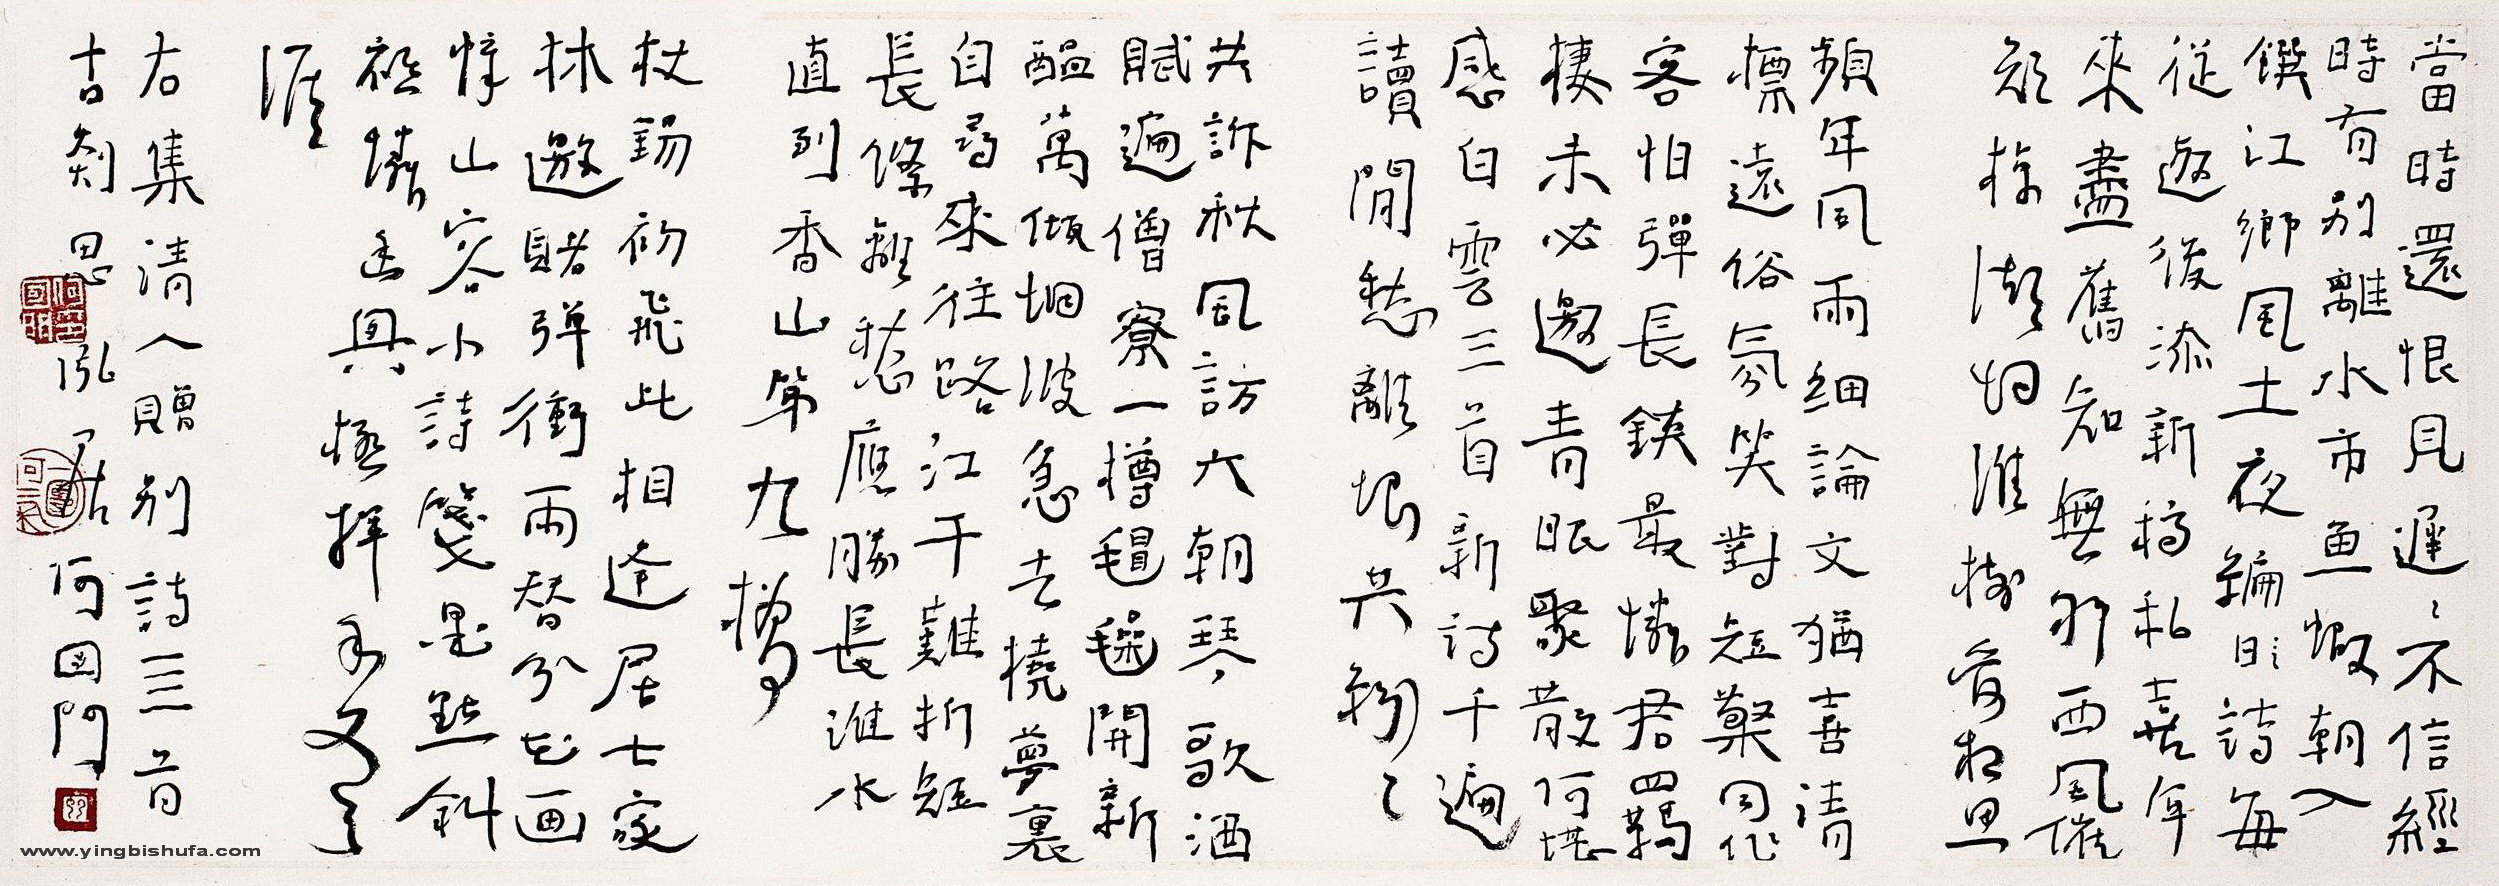 當時還恨見遲〻不信經
時有別離水市魚蝦朝入
饌江鄉風土夜編詩每
從過後添新稿私喜年
來盡舊知無那西風催
頻年風雨細論文猶喜清
標遠俗氛笑對短檠同作
客怕彈長鋏最憐君羈
棲未必邀青眼聚散何堪
感白雲三首新詩千遍
讀閒愁離恨共紛〻
共訴秋風訪大朝琴歌酒
賦遍僧寮一樽醞開新
醞萬傾烟波急去橈夢裏
自尋來往路江干難折短
長條離愁應勝長淮水
直到香山第九橋
杖錫初飛此相逢居士家
林邀賭弹衝雨替分花画
悼山容小詩箋是點斜
極憐幽興極揮手又天
涯
右集清人贈別詩三首
古剡思泓居何國門
www.yingbishufa.com